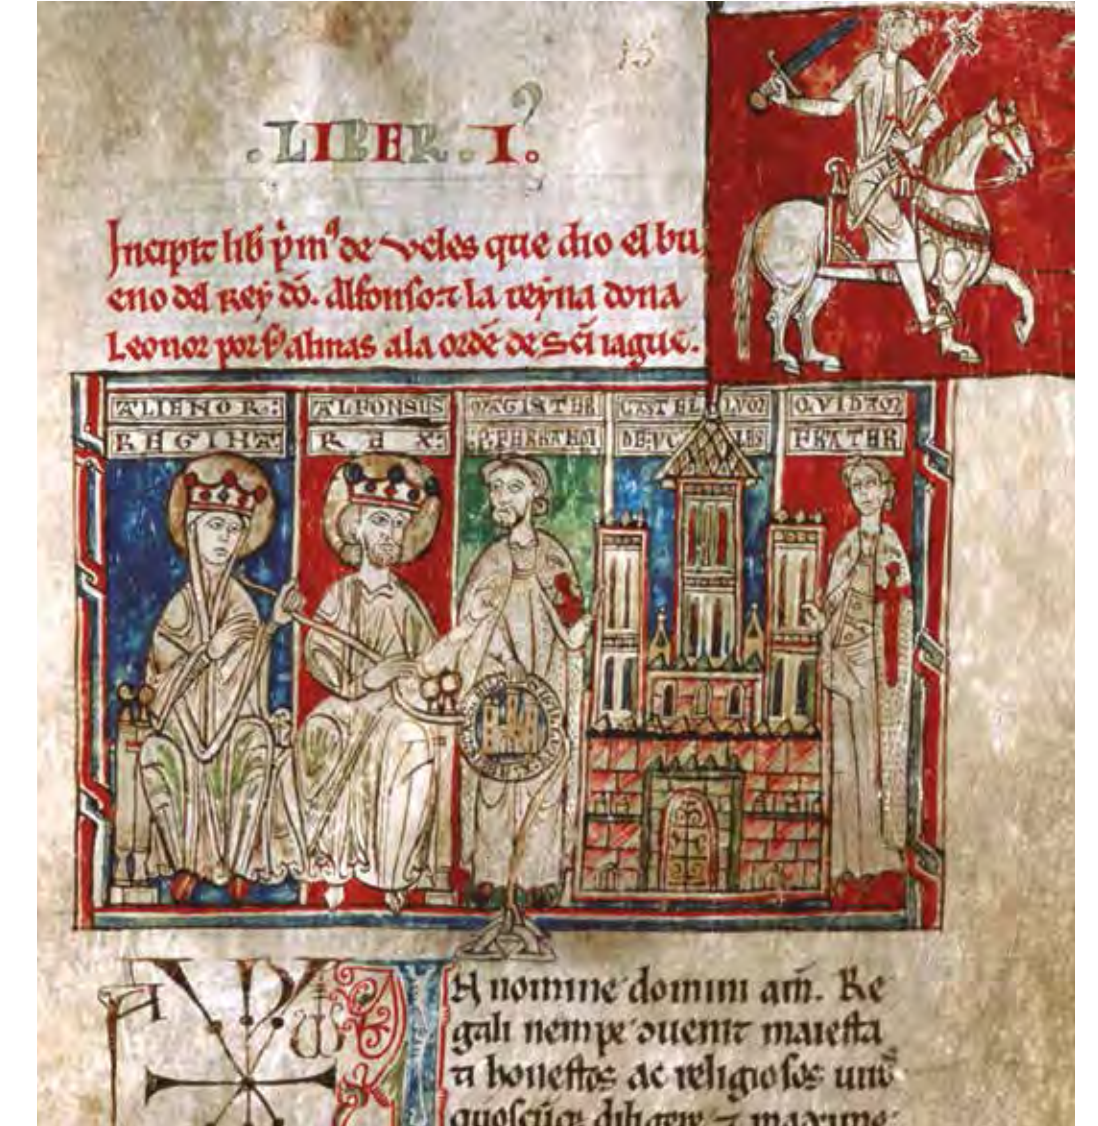 15
.LIBER.I.
Incipit lib p̄mº de veles que dio el bu
eno del Rey dō. Alfonso ⁊ la reyna dona
Leonor por s' almas ala ordē de sc̄i iague.
ALIENOR:
REGINA
ALFONSUS
REX:
MAGISTER
P. FERRANDI
CASTELLVM
DE VCLES
QVIDAM
FRATER
IN nomine domini am̄. Re
gali nempe ↄuenit maiesta
ti honestos ac religiosos uiros
quoscūq; diligere ⁊ maxime